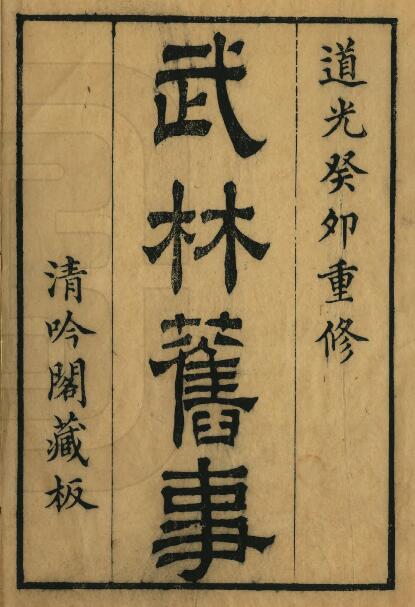 道光癸卯重修
武林舊事
清吟閣藏板